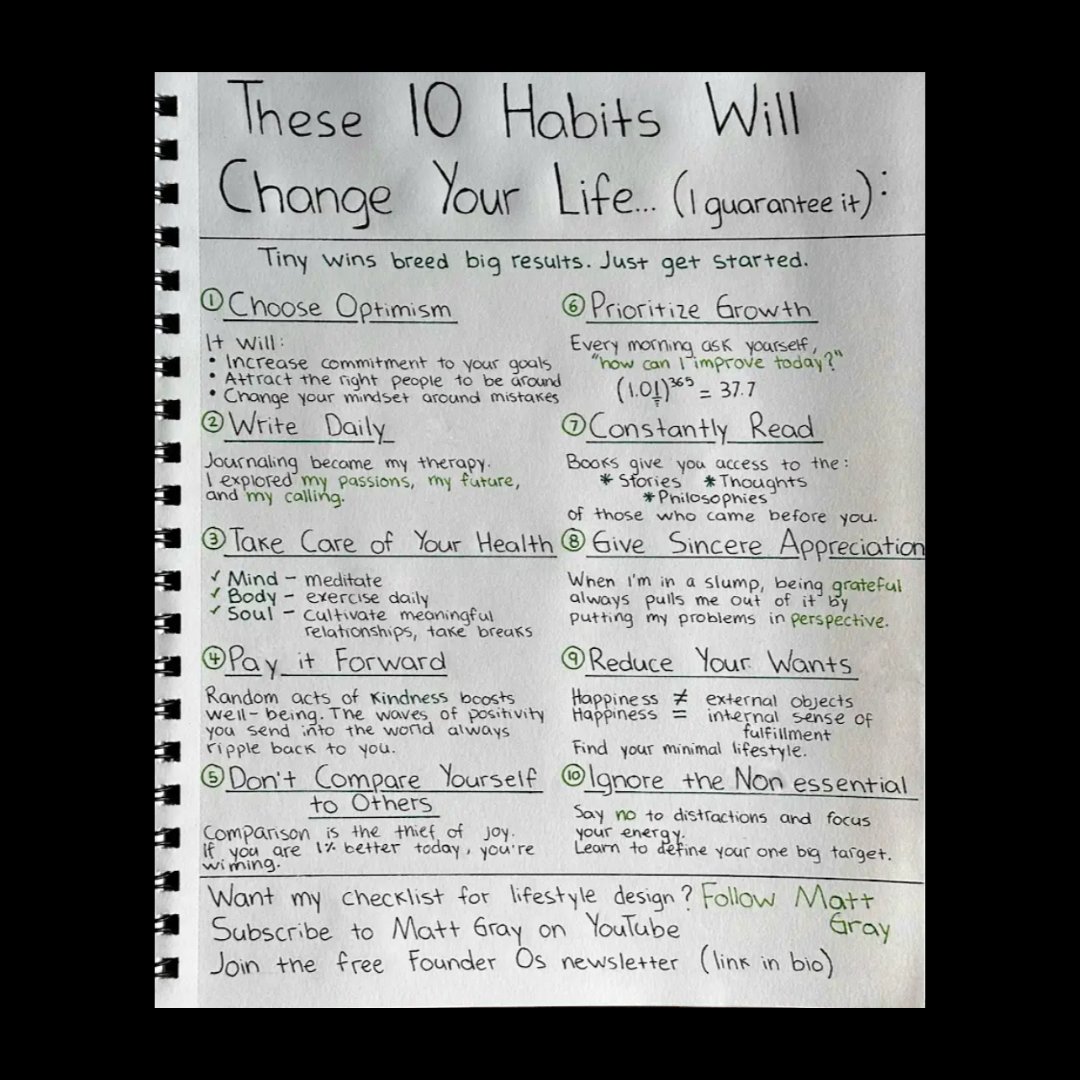 These 10 Habits Will
Change Your Life... (I guarantee it):
Tiny wins breed big results. Just get started.
① Choose Optimism
It will:
• Increase commitment to your goals
• Attract the right people to be around
• Change your mindset around mistakes
② Write Daily
Journaling became my therapy.
I explored my passions, my future,
and my calling.
③ Take Care of Your Health
✓ Mind - meditate
✓ Body - exercise daily
✓ Soul - cultivate meaningful
relationships, take breaks
④ Pay it Forward
Random acts of kindness boosts
well-being. The waves of positivity
you send into the world always
ripple back to you.
⑤ Don't Compare Yourself
to Others
Comparison is the thief of joy.
If you are 1% better today, you're
winning.
⑥ Prioritize Growth
Every morning ask yourself,
"how can I improve today?"
(1.01)³⁶⁵ = 37.7
⑦ Constantly Read
Books give you access to the:
* Stories * Thoughts
* Philosophies
of those who came before you.
⑧ Give Sincere Appreciation
When I'm in a slump, being grateful
always pulls me out of it by
putting my problems in perspective.
⑨ Reduce Your Wants
Happiness ≠ external objects
Happiness = internal sense of
fulfillment
Find your minimal lifestyle.
⑩ Ignore the Non essential
Say no to distractions and focus
your energy.
Learn to define your one big target.
Want my checklist for lifestyle design? Follow Matt
Gray
Subscribe to Matt Gray on YouTube
Join the free Founder Os newsletter (link in bio)